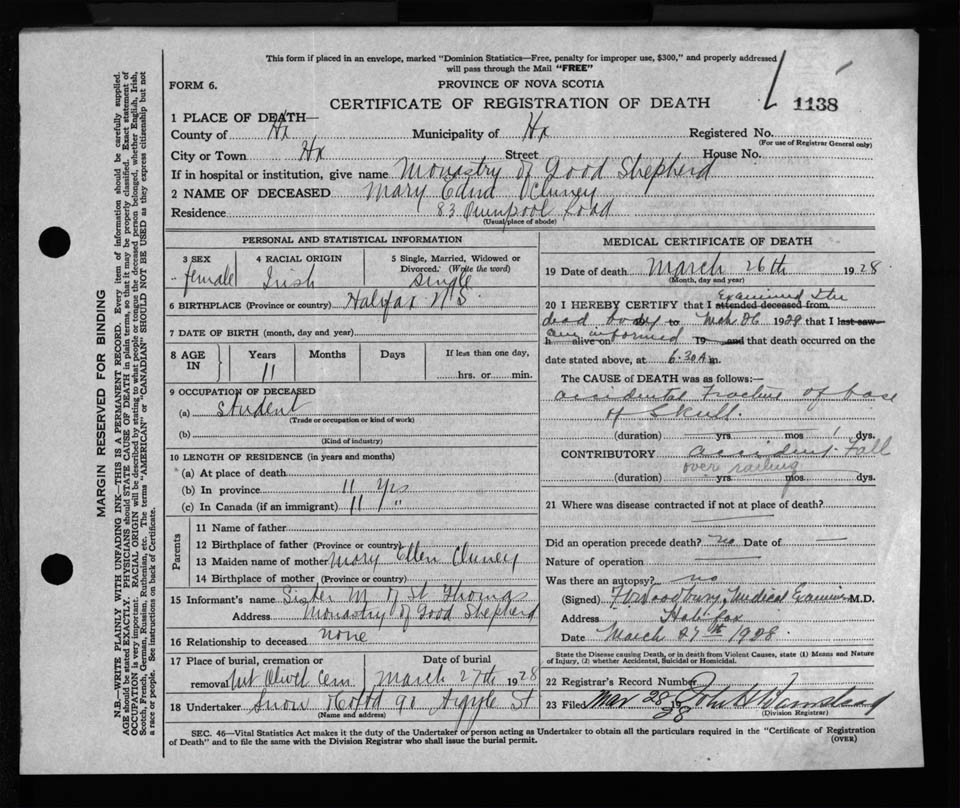 This form if placed in an envelope, marked "Dominion Statistics—Free, penalty for improper use, $300," and properly addressed
will pass through the Mail "FREE"
FORM 6.
PROVINCE OF NOVA SCOTIA
CERTIFICATE OF REGISTRATION OF DEATH
1138
1 PLACE OF DEATH—
County of Hx Municipality of Hx Registered No.
(For use of Registrar General only)
City or Town Hx Street House No.
If in hospital or institution, give name Monastry of Good Shepherd
2 NAME OF DECEASED Mary Edna Cluney
Residence 83 Quinpool Road
(Usual place of abode)
PERSONAL AND STATISTICAL INFORMATION
3 SEX 4 RACIAL ORIGIN 5 Single, Married, Widowed or
Divorced. (Write the word)
female Irish Single
6 BIRTHPLACE (Province or country) Halifax N S
7 DATE OF BIRTH (month, day and year)
8 AGE IN Years Months Days If less than one day,
11 hrs. or min.
9 OCCUPATION OF DECEASED
(a) Student
(Trade or occupation or kind of work)
(b)
(Kind of industry)
10 LENGTH OF RESIDENCE (in years and months)
(a) At place of death
(b) In province 11 Yrs
(c) In Canada (if an immigrant) 11 "
Parents
11 Name of father
12 Birthplace of father (Province or country)
13 Maiden name of mother Mary Ellen Cluney
14 Birthplace of mother (Province or country)
15 Informant's name Sister M of St Thomas
Address Monastry of Good Shepherd
16 Relationship to deceased none
17 Place of burial, cremation or Date of burial
removal Mt Olivet Cem March 27th 1928
18 Undertaker Snow & Co Ltd 90 Argyle St
(Name and address)
MEDICAL CERTIFICATE OF DEATH
19 Date of death March 26th 1928
(Month, day and year)
20 I HEREBY CERTIFY that I attended deceased from Examined the
dead body to Mch 26 1928 that I last saw
h alive on informed 19 and that death occurred on the
date stated above, at 6.30 A m.
The CAUSE of DEATH was as follows:—
accidental Fracture of base
of Skull.
(duration) yrs mos 1 dys.
CONTRIBUTORY accident. Fall
over railing
(duration) yrs mos dys.
21 Where was disease contracted if not at place of death?
Did an operation precede death? no Date of
Nature of operation
Was there an autopsy? no
(Signed) Woodbury, Medical Examiner M.D.
Address Halifax
Date March 27th 1928.
State the Disease causing Death, or in death from Violent Causes, state (1) Means and Nature
of Injury, (2) whether Accidental, Suicidal or Homicidal.
22 Registrar's Record Number
23 Filed Mar 28 1928 John
(Division Registrar)
SEC. 46—Vital Statistics Act makes it the duty of the Undertaker or person acting as Undertaker to obtain all the particulars required in the "Certificate of Registration
of Death" and to file the same with the Division Registrar who shall issue the burial permit.
(OVER)
MARGIN RESERVED FOR BINDING
N.B.—WRITE PLAINLY WITH UNFADING INK—THIS IS A PERMANENT RECORD. Every item of information should be carefully supplied.
AGE should be stated EXACTLY. PHYSICIANS should STATE CAUSE OF DEATH in plain terms, so that it may be properly classified. Exact statement of
OCCUPATION is very important. RACIAL ORIGIN will be described by stating to what people or tongue the deceased person belonged, whether English, Irish,
Scotch, French, German, Russian, Ruthenian, etc. The terms "AMERICAN" or "CANADIAN" SHOULD NOT BE USED as they express citizenship but not
a race or people. See instructions on back of Certificate.